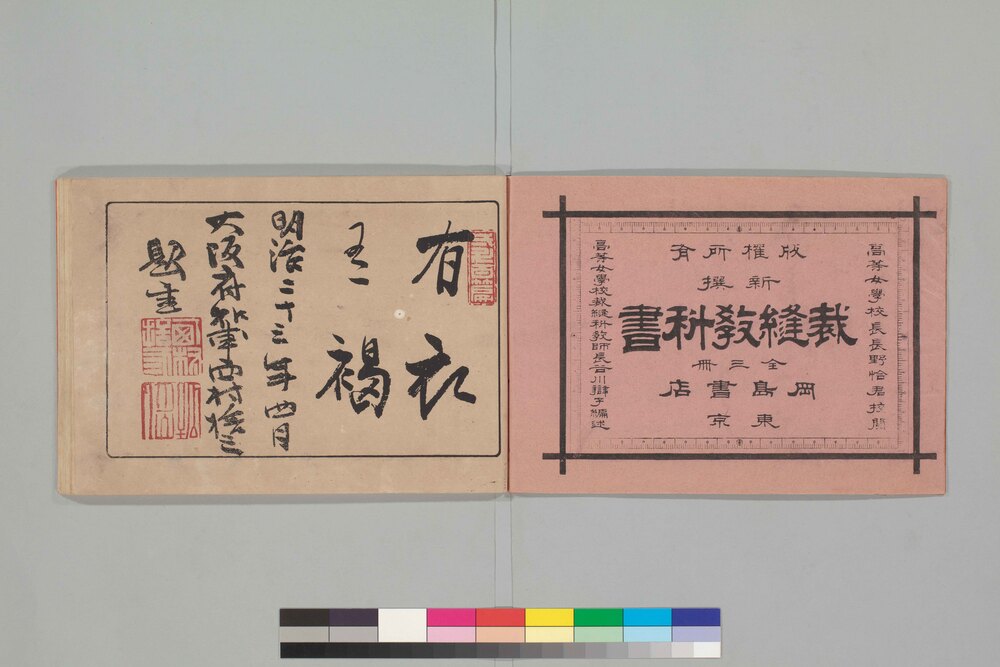 高等女學校長長野怡君校閲
版權所有
新撰
裁縫教科書
全三冊
岡島書店
東京
高等女學校裁縫科教師長谷川辯子編述
有衣
褐
明治二十三年四月
大阪府知事西村捨三
題書